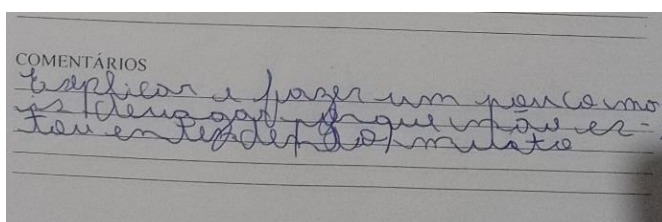 COMENTÁRIOS
Explicar e fazer um pouco mo
is devagar porque não es-
tou entendendo muito